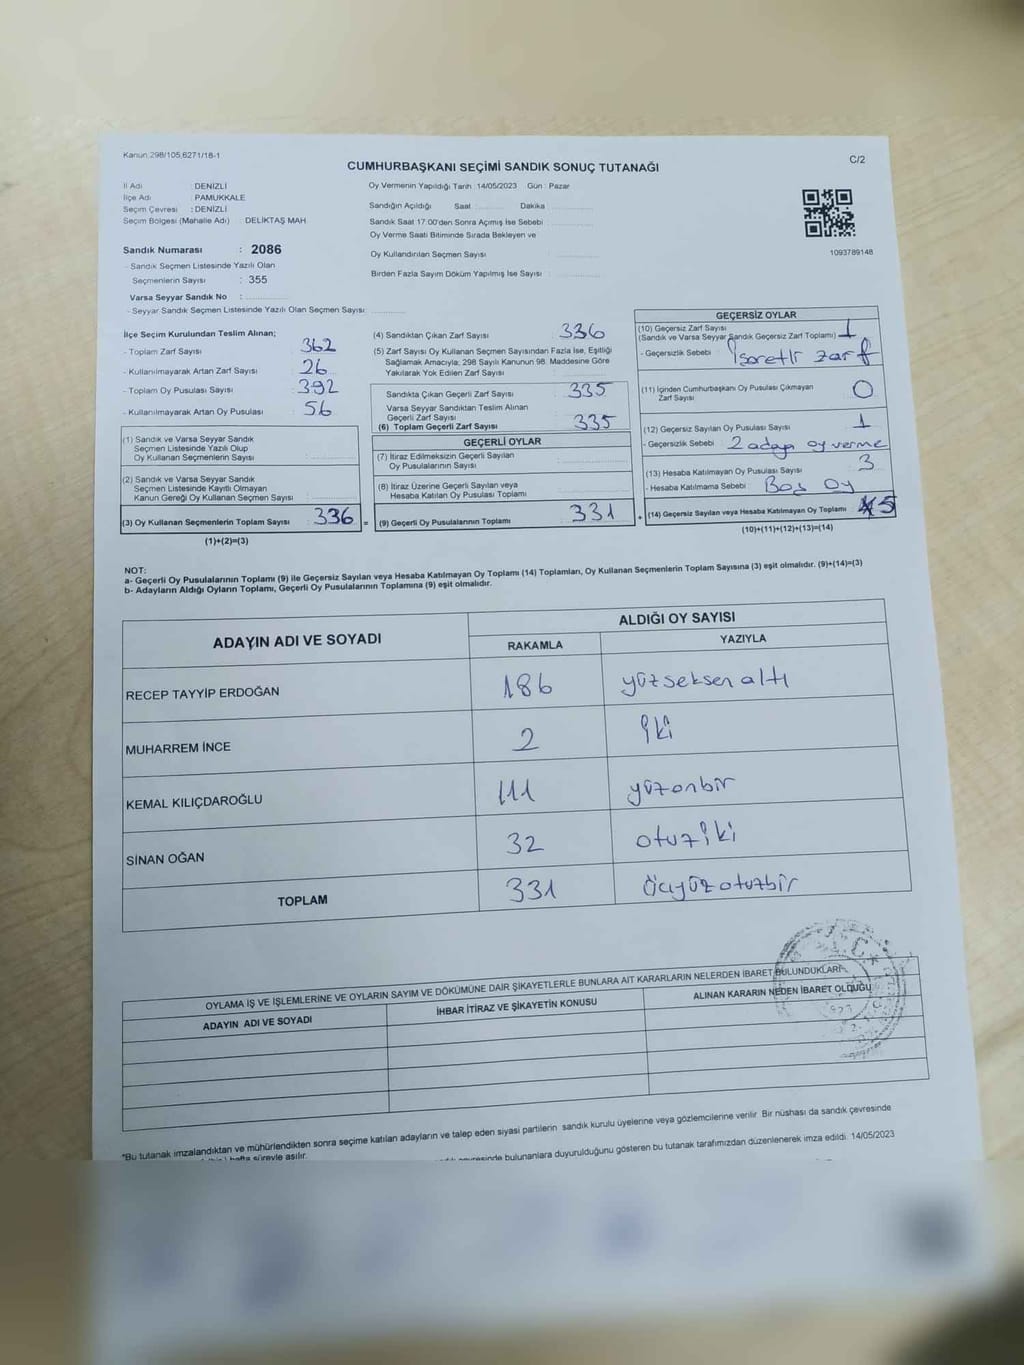 Kanun:298/105,6271/18-1
C/2
CUMHURBAŞKANI SEÇİMİ SANDIK SONUÇ TUTANAĞI
İl Adı : DENİZLİ
İlçe Adı : PAMUKKALE
Seçim Çevresi : DENİZLİ
Seçim Bölgesi (Mahalle Adı) : DELİKTAŞ MAH
Sandık Numarası : 2086
- Sandık Seçmen Listesinde Yazılı Olan
Seçmenlerin Sayısı : 355
Varsa Seyyar Sandık No :
- Seyyar Sandık Seçmen Listesinde Yazılı Olan Seçmen Sayısı:
Oy Vermenin Yapıldığı Tarih : 14/05/2023 Gün : Pazar
Sandığın Açıldığı Saat Dakika
Sandık Saat 17:00'den Sonra Açımış İse Sebebi
Oy Verme Saati Bitiminde Sırada Bekleyen ve
Oy Kullandırılan Seçmen Sayısı
Birden Fazla Sayım Döküm Yapılmış İse Sayısı
1093789148
İlçe Seçim Kurulundan Teslim Alınan;
- Toplam Zarf Sayısı : 362
- Kullanılmayarak Artan Zarf Sayısı : 26
- Toplam Oy Pusulası Sayısı : 392
- Kullanılmayarak Artan Oy Pusulası : 56
(1) Sandık ve Varsa Seyyar Sandık
Seçmen Listesinde Yazılı Olup
Oy Kullanan Seçmenlerin Sayısı
(2) Sandık ve Varsa Seyyar Sandık
Seçmen Listesinde Kayıtlı Olmayan
Kanun Gereği Oy Kullanan Seçmen Sayısı
(3) Oy Kullanan Seçmenlerin Toplam Sayısı : 336 =
(1)+(2)=(3)
(4) Sandıktan Çıkan Zarf Sayısı : 336
(5) Zarf Sayısı Oy Kullanan Seçmen Sayısından Fazla İse, Eşitliği
Sağlamak Amacıyla; 298 Sayılı Kanunun 98. Maddesine Göre
Yakılarak Yok Edilen Zarf Sayısı
Sandıkta Çıkan Geçerli Zarf Sayısı : 335
Varsa Seyyar Sandıktan Teslim Alınan
Geçerli Zarf Sayısı
(6) Toplam Geçerli Zarf Sayısı : 335
GEÇERLİ OYLAR
(7) İtiraz Edilmeksizin Geçerli Sayılan
Oy Pusulalarının Sayısı
(8) İtiraz Üzerine Geçerli Sayılan veya
Hesaba Katılan Oy Pusulası Toplamı
(9) Geçerli Oy Pusulalarının Toplamı : 331 +
GEÇERSİZ OYLAR
(10) Geçersiz Zarf Sayısı
(Sandık ve Varsa Seyyar Sandık Geçersiz Zarf Toplamı) 1
- Geçersizlik Sebebi : İşaretli zarf
(11) İçinden Cumhurbaşkanı Oy Pusulası Çıkmayan
Zarf Sayısı 0
(12) Geçersiz Sayılan Oy Pusulası Sayısı : 1
- Geçersizlik Sebebi : 2 adaya oy verme
(13) Hesaba Katılmayan Oy Pusulası Sayısı : 3
- Hesaba Katılmama Sebebi : Boş Oy
(14) Geçersiz Sayılan veya Hesaba Katılmayan Oy Toplamı : 5
(10)+(11)+(12)+(13)=(14)
NOT:
a- Geçerli Oy Pusulalarının Toplamı (9) ile Geçersiz Sayılan veya Hesaba Katılmayan Oy Toplamı (14) Toplamları, Oy Kullanan Seçmenlerin Toplam Sayısına (3) eşit olmalıdır. (9)+(14)=(3)
b- Adayların Aldığı Oyların Toplamı, Geçerli Oy Pusulalarının Toplamına (9) eşit olmalıdır.
ADAYIN ADI VE SOYADI
ALDIĞI OY SAYISI
RAKAMLA YAZIYLA
RECEP TAYYİP ERDOĞAN 186 yüzseksenaltı
MUHARREM İNCE 2 iki
KEMAL KILIÇDAROĞLU 111 yüzonbir
SİNAN OĞAN 32 otuziki
TOPLAM 331 üçyüzotuzbir
OYLAMA İŞ VE İŞLEMLERİNE VE OYLARIN SAYIM VE DÖKÜMÜNE DAİR ŞİKAYETLERLE BUNLARA AİT KARARLARIN NELERDEN İBARET BULUNDUKLARI
ADAYIN ADI VE SOYADI İHBAR İTİRAZ VE ŞİKAYETİN KONUSU ALINAN KARARIN NEDEN İBARET OLDUĞU
*Bu tutanak imzalandıktan ve mühürlendikten sonra seçime katılan adayların ve talep eden siyasi partilerin sandık kurulu üyelerine veya gözlemcilerine verilir Bir nüshası da sandık çevresinde
hafta süreyle asılır.
bulunanlara duyurulduğunu gösteren bu tutanak tarafımızdan düzenlenerek imza edildi. 14/05/2023